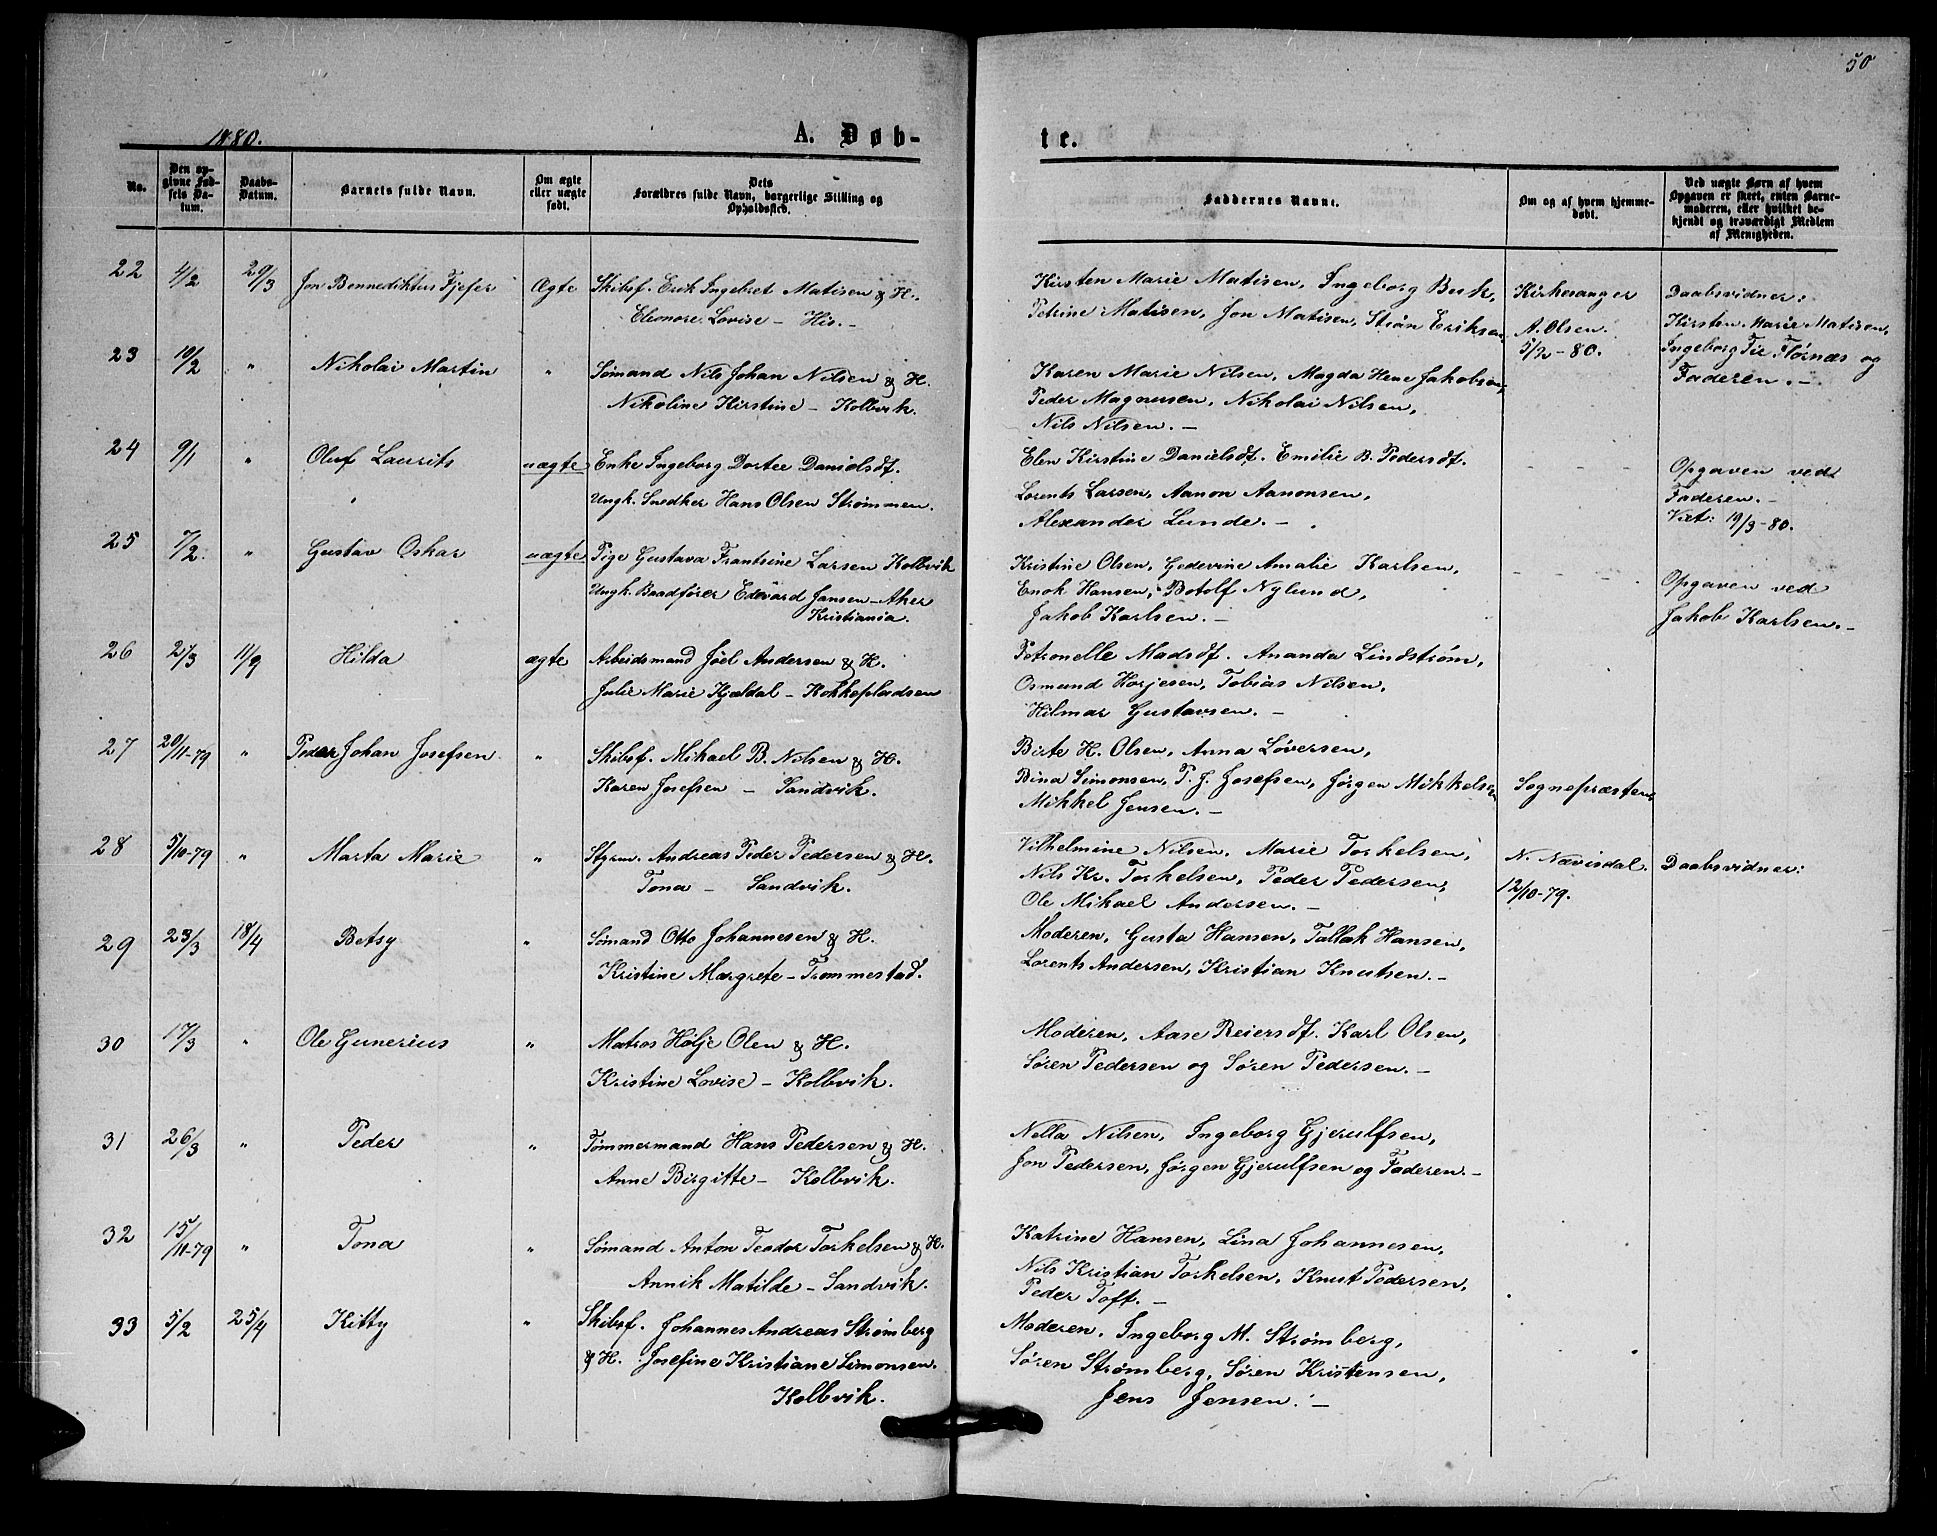 50
1880.
A. Døb-
te.
No.
Den op-
givne Fød-
sels Da-
tum.
Daabs-
Datum.
Barnets fulde Navn.
Om ægte
eller uægte
født.
Dets
Forældres fulde Navn, borgerlige Stilling og
Opholdssted.
Faddernes Navne.
Om og af hvem hjemme-
døbt.
Ved uægte Børn af hvem
Opgaven er skeet, enten Barne-
moderen, eller hvilket be-
kjendt og troværdigt Medlem
af Menigheden.
22 4/2 29/3 Jon Bennediktus Fjeser Ægte Skibsf. Erik Ingebret Matisen & H.
Eleonore Lovise – His. –
Kirsten Marie Matisen, Ingeborg Berk,
Petrine Matisen, Jon Matisen, Stian Eriksen,
Kirkesanger
A. Olsen.
5/2-80.
Daabsvidner:
Kirsten Marie Matisen,
Ingeborg Flørnæs og
Faderen. –
23 19/2 " Nikolai Martin " Sømand Nils Johan Nilsen & H.
Nikoline Kirstine – Kolbvik.
Karen Marie Nilsen, Magda Hene Jakobsen,
Peder Magnusen, Nikolai Nilsen,
Nils Nilsen. –
24 9/1 " Oluf Laurits uægte Enke Ingeborg Dortee Danielsdf.
Ungk. Snedker Hans Olsen Strømmen.
Elen Kirstine Danielsdf. Emilie B. Pedersdf.
Lorents Larsen, Aanon Aanonsen,
Alexander Lunde. –
Opgaven ved
Faderen. –
Viet: 19/3-80.
25 7/2 " Gustav Oskar uægte Pige Gustava Frantsine Larsen Kolbvik
Ungk. Baadfører Edevard Jansen – Aker
Kristiania.
Kristine Olsen, Gedevine Amalie Karlsen,
Enok Hansen, Botolf Nylund,
Jakob Karlsen. –
Opgaven ved
Jakob Karlsen. –
26 2/3 11/9 Hilda ægte Arbeidsmand Joel Andersen & H.
Julie Marie Kjældal – Kokkepladsen
Petronelle Madsdf. Ananda Lindstrøm,
Osmund Horjesen, Tobias Nilsen,
Hilmar Gustavsen. –
27 20/11-79 " Peder Johan Josefsen " Skibsf. Mikael B. Nilsen & H.
Karen Josefsen – Sandvik.
Birte H. Olsen, Anna Løversen,
Bina Simonsen, P. J. Josefsen, Jørgen Mikkelsen
Mikkel Jensen. –
Sognepræsten
28 5/10-79 " Marta Marie " Styrm. Andreas Peder Pedersen & H.
Tona – Sandvik.
Vilhelmine Nilsen, Marie Torkelsen,
Nils Kr. Torkelsen, Peder Pedersen,
Ole Mikael Andersen. –
N. Nævisdal.
12/10-79.
Daabsvidner:
29 23/3 18/4 Betsy " Sømand Otto Johannesen & H.
Kristine Margrete – Trommestad.
Moderen, Gusta Hansen, Tallak Hansen,
Lorents Andersen, Kristian Knutsen. –
30 17/3 " Ole Gunerius " Matros Hølje Olen & H.
Kristine Lovise – Kolbvik.
Moderen, Aase Reiersdf. Karl Olsen,
Søren Pedersen og Søren Pedersen. –
31 26/3 " Peder " Tømmermand Hans Pedersen & H.
Anne Birgitte – Kolbvik.
Nella Nilsen, Ingeborg Gjerulfsen,
Jon Pedersen, Jørgen Gjerulfsen og Faderen. –
32 15/11-79 " Tona " Sømand Anton Teodor Torkelsen & H.
Annik Matilde – Sandvik.
Katrine Hansen, Lina Johannesen,
Nils Kristian Torkelsen, Knut Pedersen,
Peder Toft. –
33 5/2 25/4 Kitty " Skibsf. Johannes Andreas Strømberg
& H. Josefine Kristiane Simonsen.
Kolbvik.
Moderen, Ingeborg M. Strømberg,
Søren Strømberg, Søren Kristensen,
Jens Jensen. –